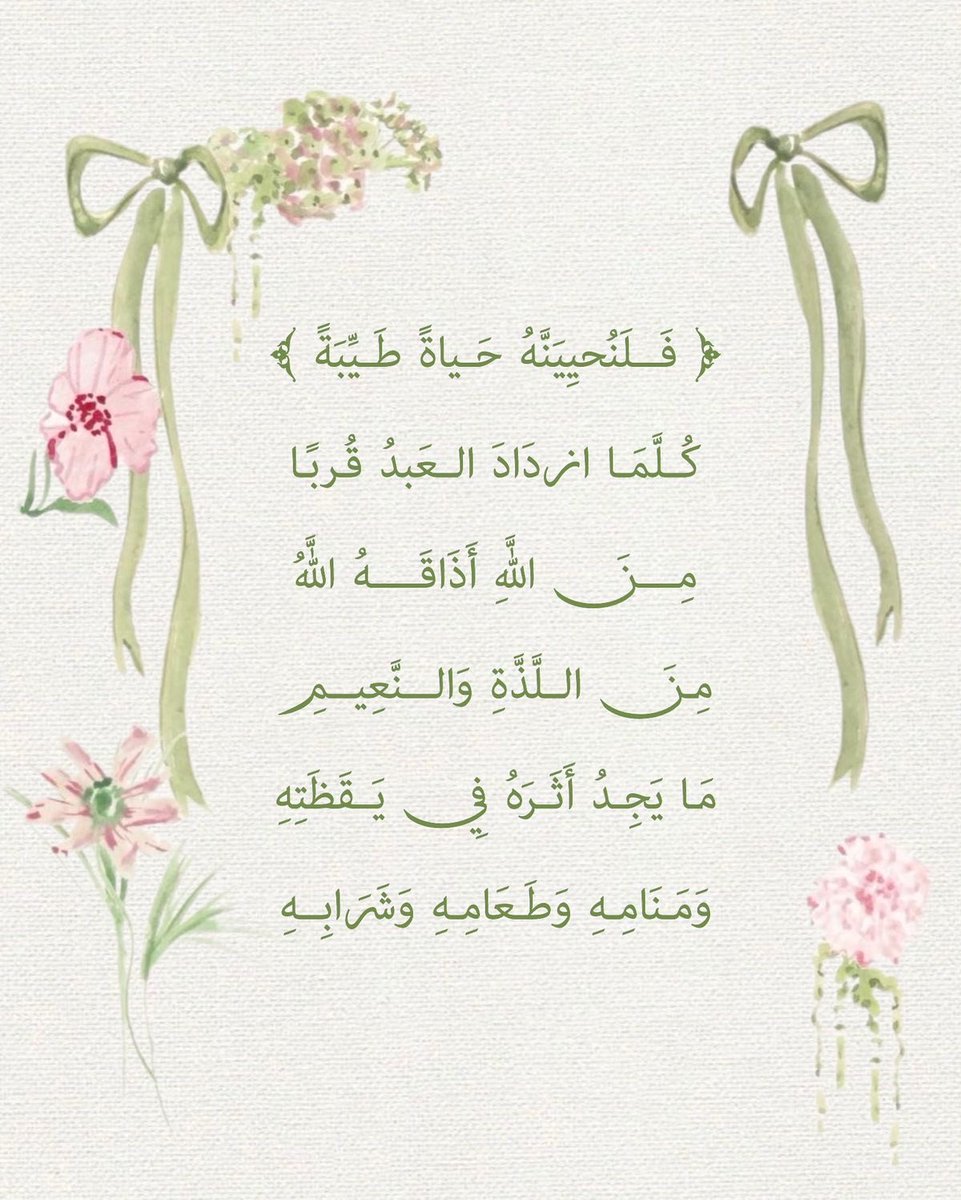 ﴿ فَلَنُحيِيَنَّهُ حَياةً طَيِّبَةً ﴾
كُلَّمَا ازدَادَ العَبدُ قُربًا
مِنَ اللَّهِ أَذَاقَهُ اللَّهُ
مِنَ اللَّذَّةِ وَالنَّعِيمِ
مَا يَجِدُ أَثَرَهُ فِي يَقَظَتِهِ
وَمَنَامِهِ وَطَعَامِهِ وَشَرَابِهِ